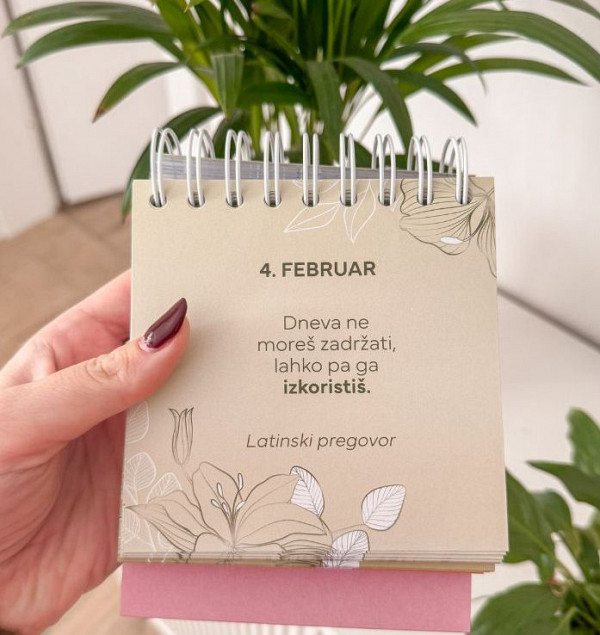 4. FEBRUAR
Dneva ne
moreš zadržati,
lahko pa ga
izkoristiš.
Latinski pregovor